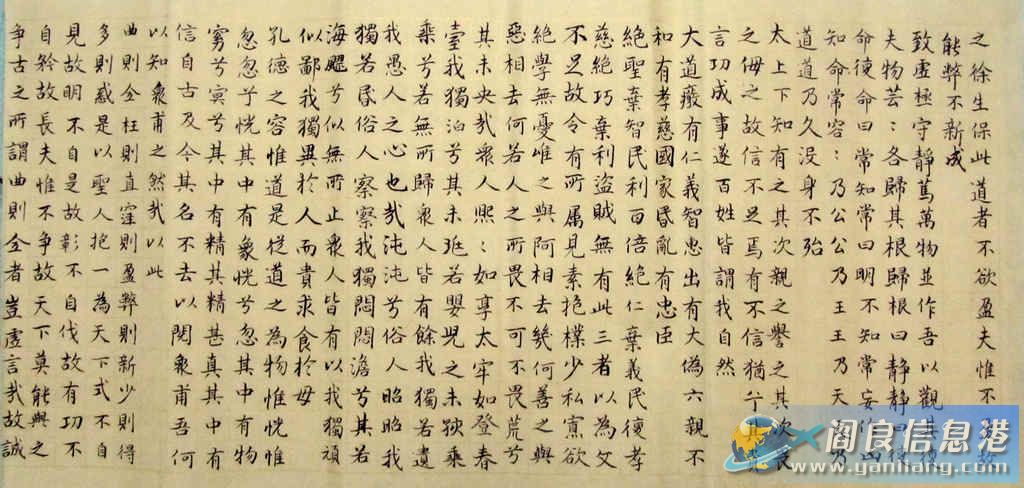 之徐生保此道者不欲盈夫惟不盈故
能弊不新成
致虛極守靜篤萬物並作吾以觀其復
夫物芸:各歸其根歸根曰靜靜曰復
命復命曰常知常曰明不知常妄作凶
知命常容:乃公公乃王王乃天天乃
道道乃久没身不殆
太上下知有之其次親之譽之其次畏
之侮之故信不足焉有不信猶兮其貴
言功成事遂百姓皆謂我自然
大道癈有仁義智恵出有大偽六親不
和有孝慈國家昏亂有忠臣
絕聖棄智民利百倍絕仁棄義民復孝
慈絕巧棄利盜賊無有此三者以為文
不足故令有所属見素抱樸少私寡欲
絕學無憂唯之與阿相去幾何善之與
惡相去何若人之所畏不可不畏荒兮
其未央哉衆人熙:如享太牢如登春
臺我獨泊兮其未兆若嬰兒之未孩乘
乘兮若無所歸衆人皆有餘我獨若遺
我愚人之心也哉沌沌兮俗人昭昭我
獨若昏俗人察察我獨悶悶澹兮其若
海飂兮似無所止衆人皆有以我獨頑
似鄙我獨異於人而貴求食於母
孔德之容惟道是從道之為物惟恍惟
忽忽兮恍其中有象恍兮忽其中有物
窈兮冥兮其中有精其精甚真其中有
信自古及今其名不去以閱衆甫吾何
以知衆甫之然哉以此
曲則全枉則直窪則盈弊則新少則得
多則惑是以聖人抱一為天下式不自
見故明不自是故彰不自伐故有功不
自矜故長夫惟不爭故天下莫能與之
爭古之所謂曲則全者豈虛言哉故誠
阎良信息港
www.yanliang.com